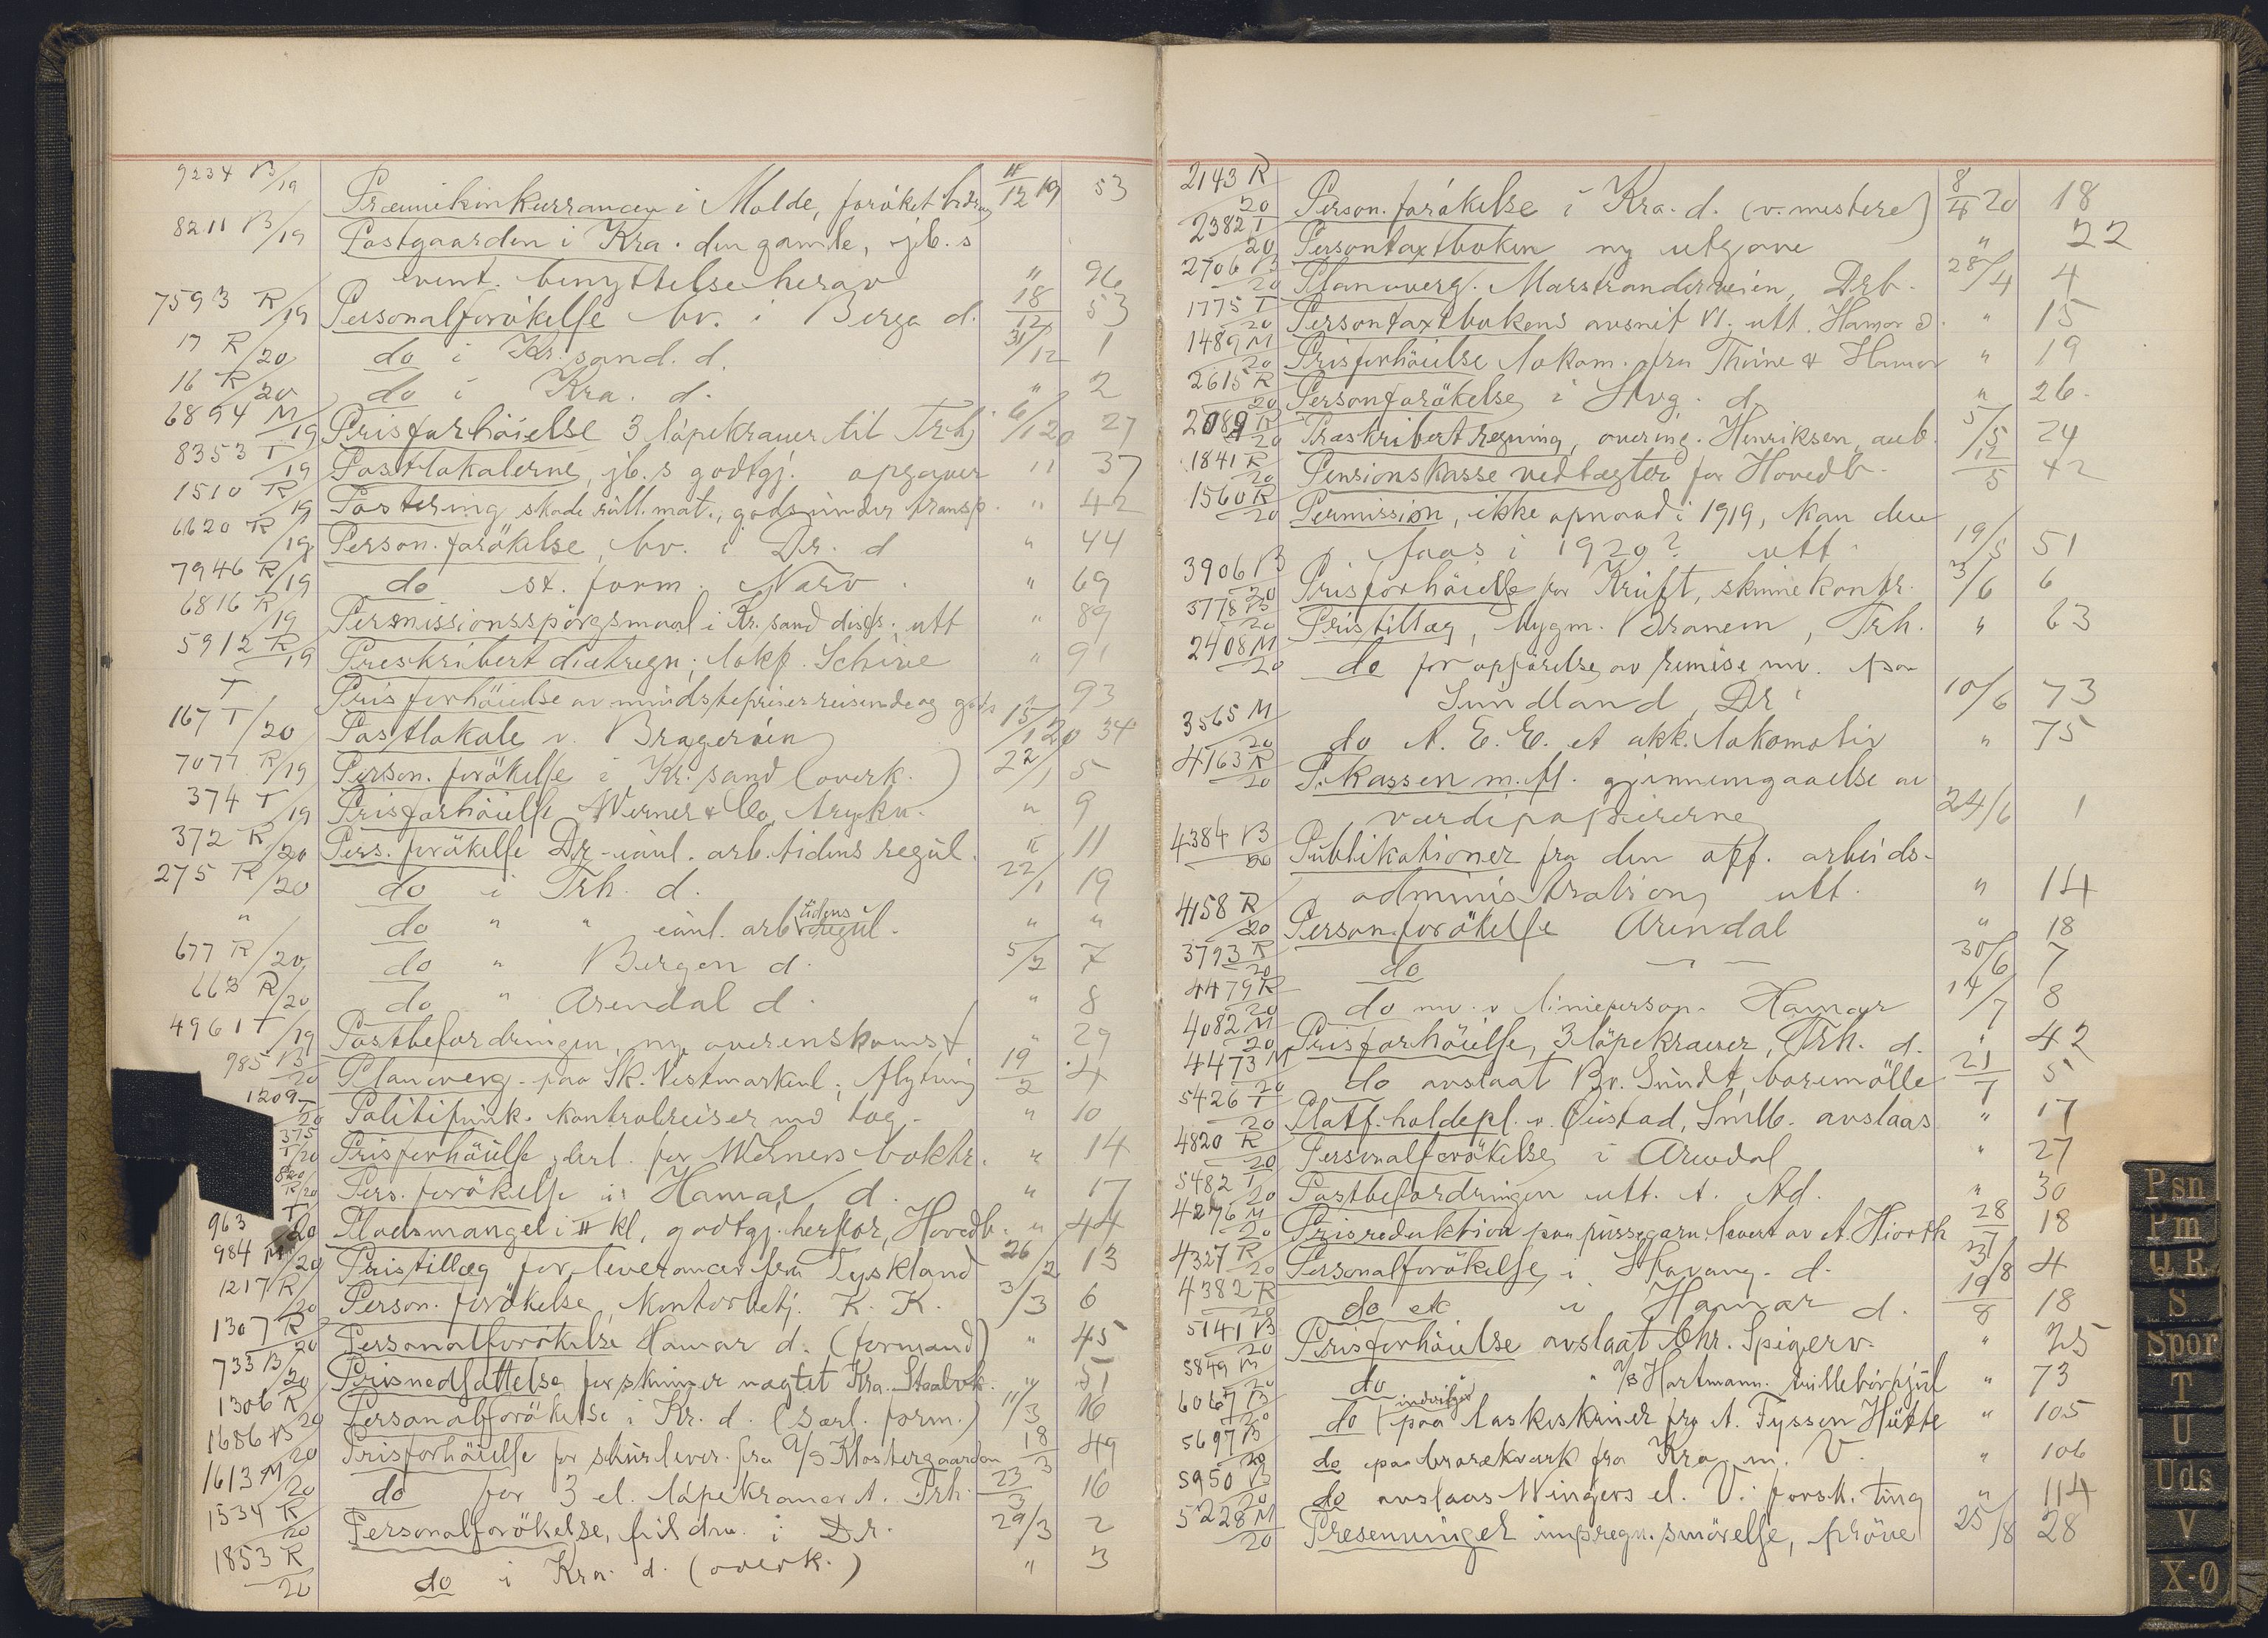 9234 B/19 Præmiekonkurrancen i Molde, forøket bidrag 11/12 19 53
8211 B/19 Postgaarden i Kra. den gamle, jb.s
event. benyttelse herav " 96
7593 R/19 Personalforökelse bv. i Berge d. 18/12 53
17 R/20 do i Kr.sand. d. 31/12 1
16 R/20 do i Kra. d. " 2
6894 M/19 Prisforhöielse 3 löpekraner til Trhj 6/1 20 27
8353 T/19 Postlokalerne, jb.s godtgj. opgaver " 37
1510 R/19 Postering skade rull. mat., gods under transp. " 42
6620 R/19 Person.forökelse, bv. i Dr. d " 44
7946 R/19 do st. form. Narv. " 69
6816 R/19 Permissionsspörgsmaal i Kr.sand distr. utt " 89
5912 R/19 Preskribert diætregn; lokf. Schive " 91
T Prisforhöielse av mindstepriser reisende og gods 93
167 T/20 Postlokale v. Brageröen 15/1 20 34
7077 R/19 Person. forökelse i Kr.sand (overk.) 22/1 5
374 T/19 Prisforhöielse Werner & Co, trykn. " 9
372 R/20 Pers. forökelse Dr-eanl. arb.tidens regul. " 11
275 R/20 do i Trh. d. 22/1 19
" do " " eanl. arb.tidens regul. " "
677 R/20 do " Bergen d. 5/2 7
663 R/20 do " Arendal d. " 8
4961 T/19 Postbefordringen, ny overenskomst " 29
985 B/20 Planoverg. paa Sk. Vestmarkenl; flytning 19/2 4
1209 T/20 Politifunk. kontrolreiser med tog. " 10
375 T/20 Prisforhöielse, erkl. for Werners boktr. " 14
R/20 Pers. forökelse i Hamar d. " 17
963 T/20 Pladsmangel i II kl, godtgj. herfor, Hovedb. " 44
984 M/20 Pristillæg for leverancer fra Tyskland 26/2 13
1217 R/20 Person. forökelse, kontorbetj. K. K. 3/3 6
1307 R/20 Personalforökelse Hamar d. (formand) " 45
733 B/20 Prisnedsættelse for skinner nægtet Kra. Staalvk. " 51
1306 R/20 Personalforökelse i Kr. d. (særl. form.) 11/3 16
1686 B/20 Prisforhöielse for skurlever. fra A/S Klostergaarden 18/3 49
1613 M/20 do for 3 el. löpekraner t. Trh. 23/3 16
1534 R/20 Personalforökelse, fuldm. i Dr. 29/3 2
1853 R/20 do i Kra. d. (overk.) " 3
2143 R/20 Person. forökelse i Kra. d. (v. mestere) 8/4 20 18
2382 T/20 Persontaxtboken ny utgave " 22
2706 B/20 Planoverg. Marstranderveien, Drb. 28/4 4
1775 T/20 Persontaxtbokens avsnit VI. utt. Hamar d. " 15
1489 M/20 Prisforhöielse lokom. fra Thune & Hamar " 19
2615 R/20 Personforökelse i Stvg. d. " 26
2089 R/20 Præskribert regning, overing. Henriksen, anb. 5/5 24
1841 R/20 Pensionskasse vedtægter for Hovedb. 12/5 42
1560 R/20 Permission, ikke opnaad i 1919, kan den
faaes i 1920? utt. 19/5 51
3906 B/20 Prisforhöielse for Kruft, skinnekontr. 3/6 6
3778 B/20 Pristillæg, bygm. Branem, Trh. " 63
2408 M/20 do for opförelse av remise mv. paa
Sundland, Dr. 10/6 73
3565 M/20 do A. E. E. et akk. lokomotiv " 75
4163 R/20 P.kassen m. fl. gjennemgaaelse av
værdipapirerne 24/6 1
4384 B/20 Publikationer fra den off. arbeids-
administration, utt. " 14
4158 R/20 Person.forökelse Arendal " 18
3793 R/20 do — " — 30/6 7
4479 R/20 do mv. v linieperson. Hamar 14/7 8
4082 M/20 Prisforhöielse, 3 löpekraner, Trh. d. " 42
4473 M/20 do avslaat Br. Sundt, boremölle 21/7 5
5426 T/20 Platf.holdepl. v. Quistad, Smlb. avslaas " 17
4820 R/20 Personalforökelse i Arendal " 27
5482 T/20 Postbefordringen utt. t. Ad. " 30
4296 M/20 Prisreduktion paa pussegarn levert av A. Hiorth 28/7 18
4327 R/20 Personalforökelse i Stavang. d. 3/8 4
4382 R/20 do etc i Hamar d. 19/8 18
5141 B/20 Prisforhöielse avslaat Chr. Spigerv. " 25
5849 M/20 do " A/S Hartmann. trillebörhjul " 73
6067 B/20 do indvilges paa laskeskinner fra A. Tyssen Hütte " 105
5697 B/20 do paa broræckverk fra Kra. m. V. " 106
5950 B/20 do avslaas Wingers el. V. forsk. ting " 114
5228 M/20 Presenninger impregn. smörelse, pröve 25/8 28
Psn
Pm
Q R
S
Spor
T
U
Uds
V
X-Ø